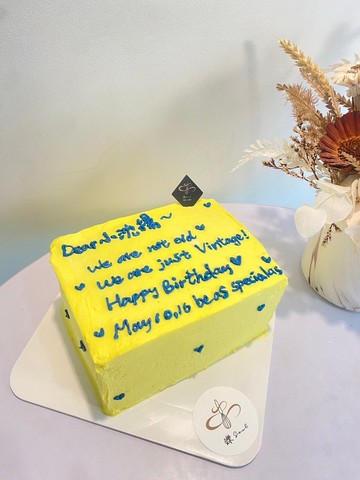 Dear小
we are not old
we are just Vintage!
Happy Birthday
May 10,16 be as special as